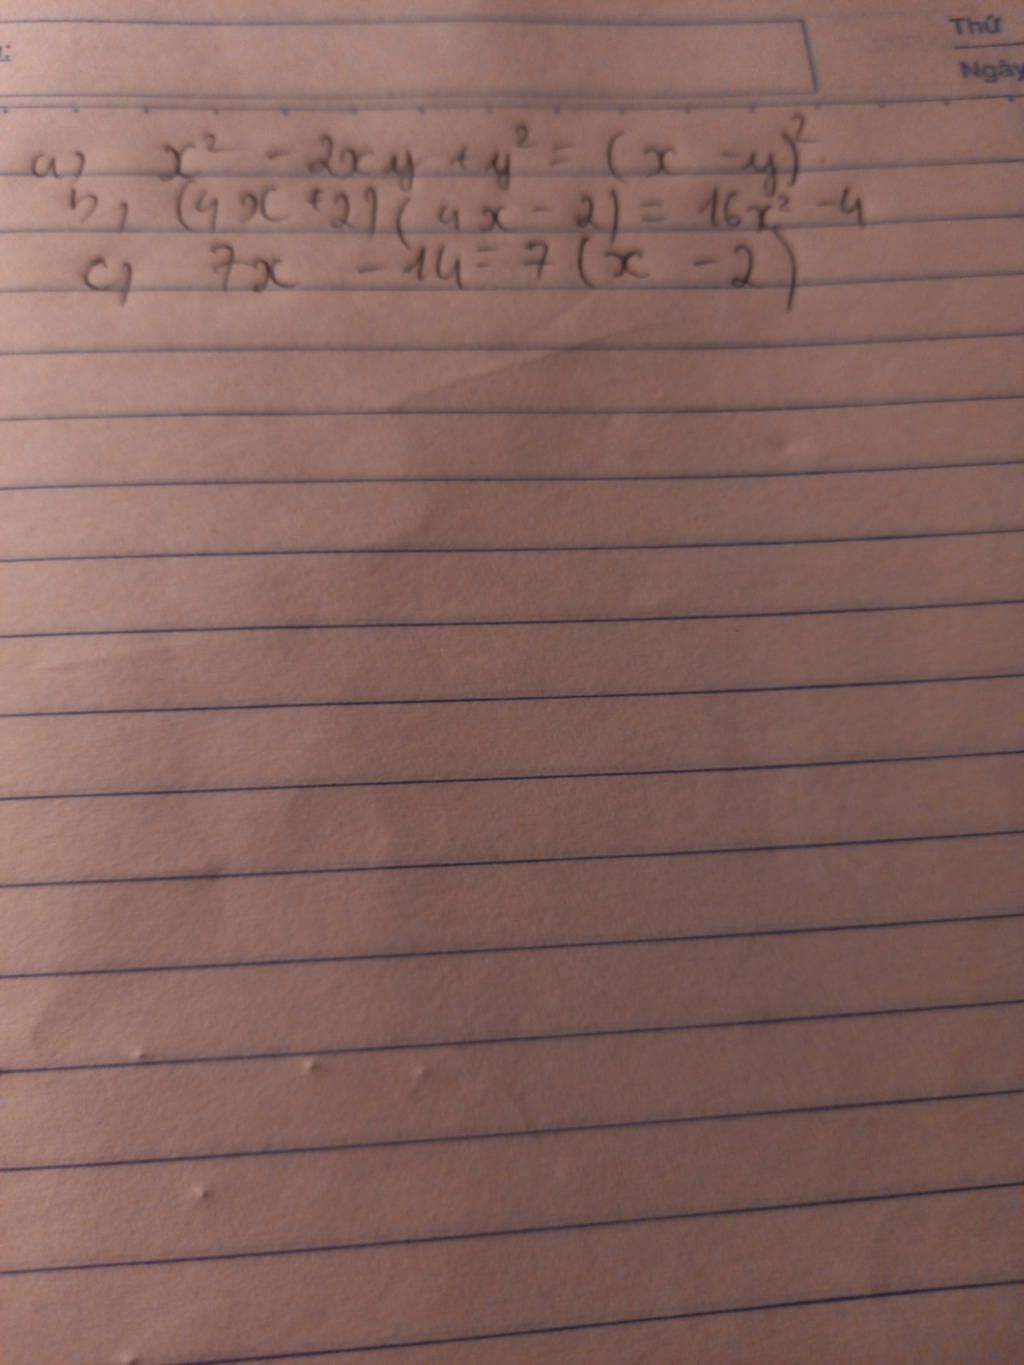 Thứ
Ngày
a) x² - 2xy + y² = (x - y)²
b) (4x + 2)(4x - 2) = 16x² - 4
c) 7x - 14 = 7(x - 2)